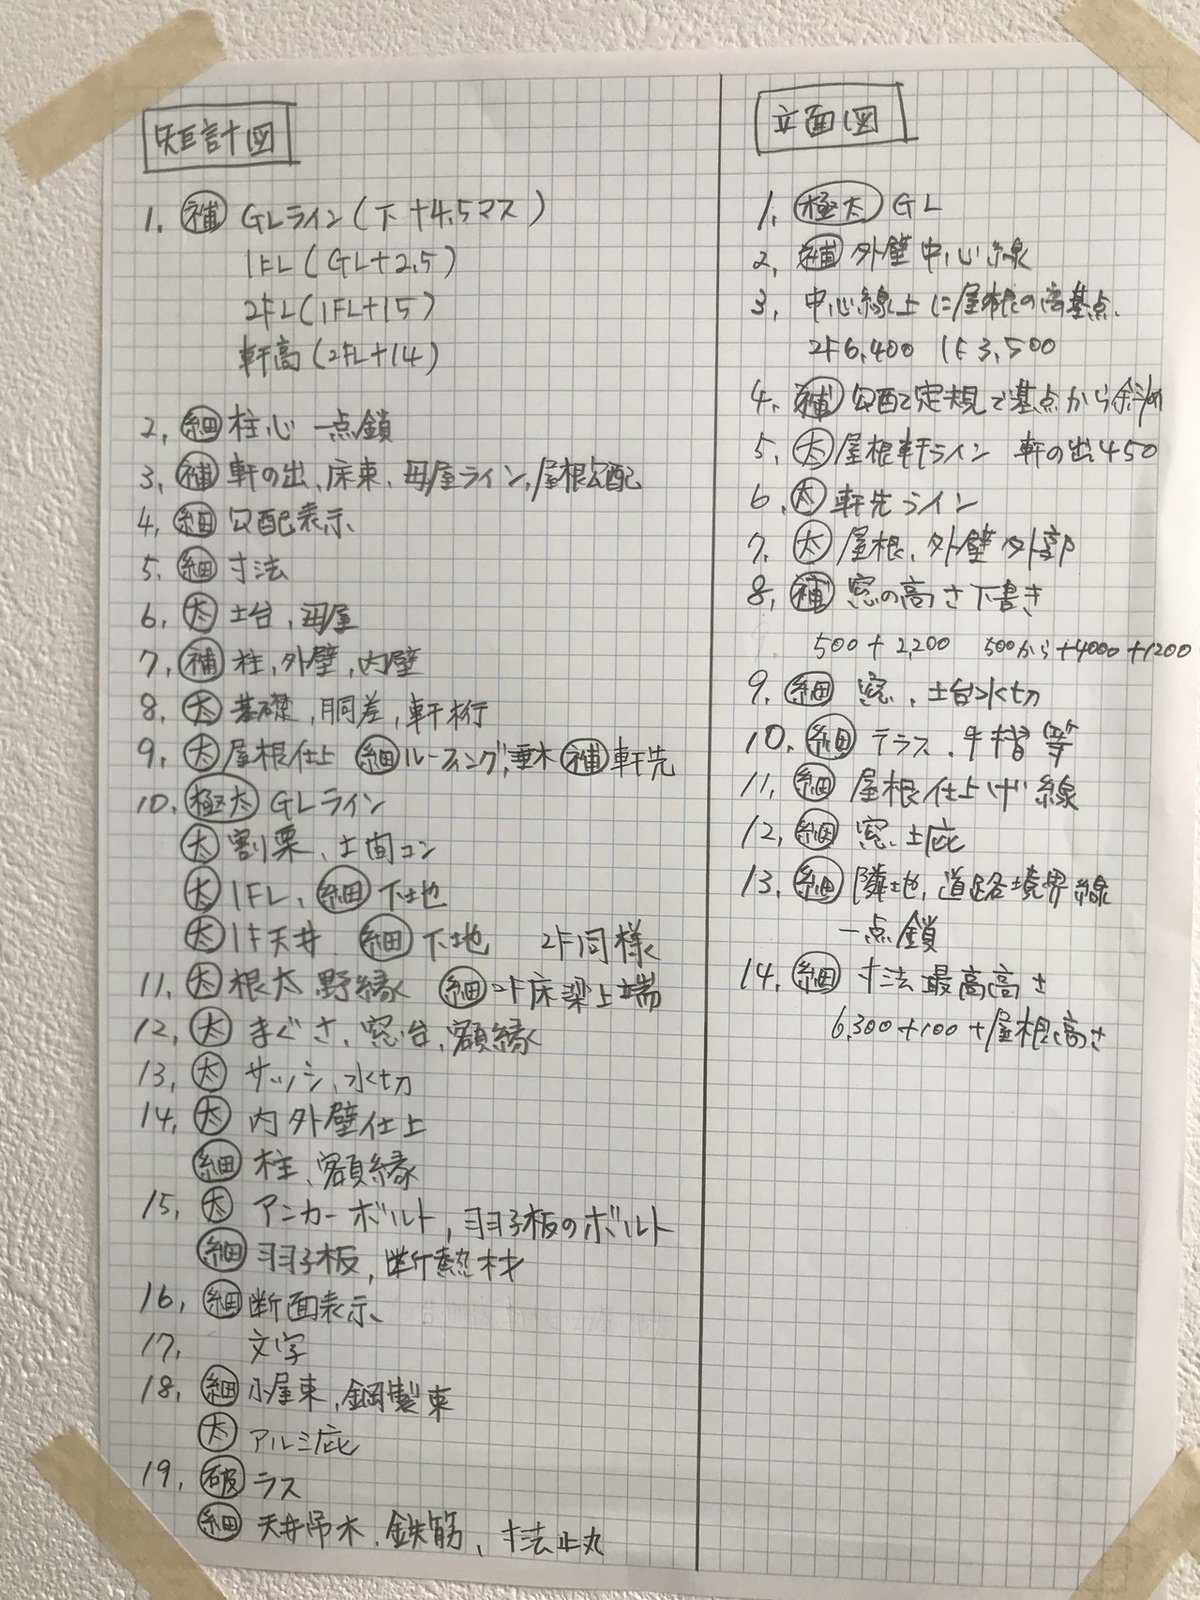 矩計図
1. 補 GLライン(下+4.5マス)
1FL(GL+2.5)
2FL(1FL+15)
軒高(2FL+14)
2. 細 柱心 一点鎖
3. 補 軒の出、床束、母屋ライン、屋根勾配
4. 細 勾配表示
5. 細 寸法
6. 太 土台、母屋
7. 補 柱、外壁、内壁
8. 太 基礎、胴差、軒桁
9. 太 屋根仕上 細 ルーフィング、垂木 補 軒先
10. 極太 GLライン
太 割栗、土間コン
太 1FL、細 下地
太 1F天井 細 下地 2F同様
11. 太 根太 野縁 細 2F床梁上端
12. 太 まぐさ、窓台、額縁
13. 太 サッシ、水切
14. 太 内外壁仕上
細 柱、額縁
15. 太 アンカーボルト、羽子板のボルト
細 羽子板、断熱材
16. 細 断面表示
17. 文字
18. 細 小屋束、鋼製束
太 アルミ庇
19. 破 ラス
細 天井吊木、鉄筋、寸法止丸
立面図
1. 極太 GL
2. 補 外壁中心線
3. 中心線上に屋根の高基点
2F6,400 1F3,500
4. 補 勾配定規で基点から斜め
5. 太 屋根軒ライン 軒の出450
6. 太 軒先ライン
7. 太 屋根、外壁外部
8. 補 窓の高さ下書き
500+2,200 500から+4000+1200
9. 細 窓、土台水切
10. 細 テラス、手摺等
11. 細 屋根仕上げ線
12. 細 窓、庇
13. 細 隣地、道路境界線
一点鎖
14. 細 寸法最高高さ
6,300+100+屋根高さ